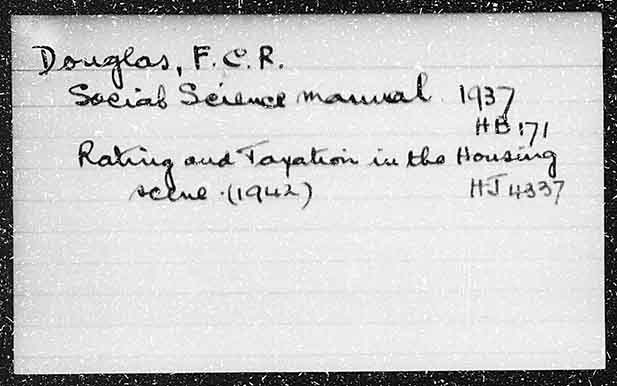 Douglas, F.C.R.
Social Science manual 1937
HB 171
Rating and Taxation in the Housing
scene. (1942) HJ 4337